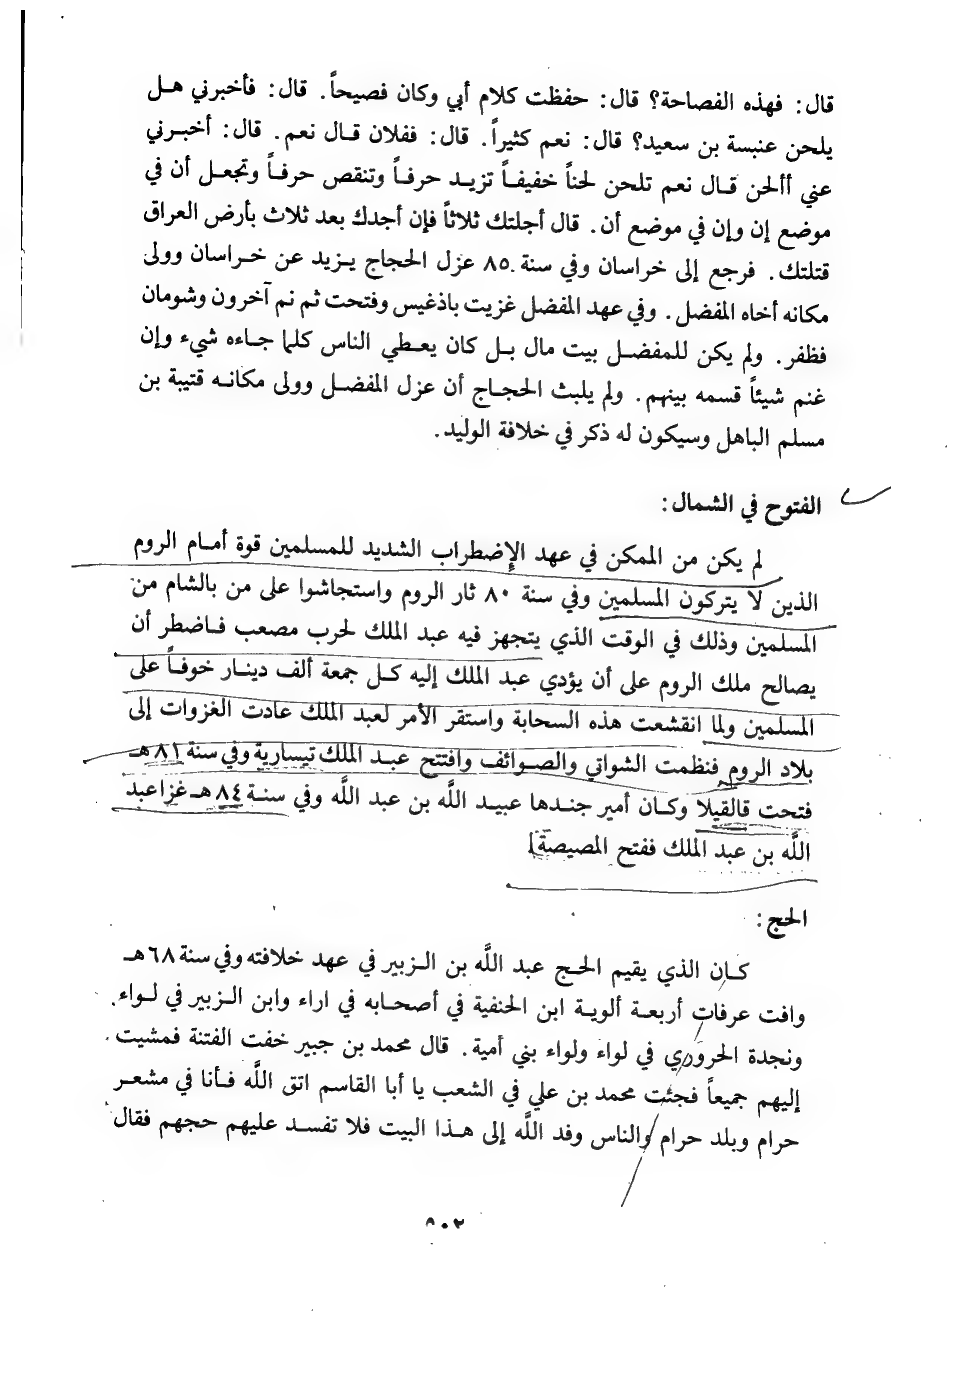 قال: فهذه الفصاحة؟ قال: حفظت كلام أبي وكان فصيحاً. قال: فأخبرني هل
يلحن عنبسة بن سعيد؟ قال: نعم كثيراً. قال: ففلان قال نعم. قال: أخبرني
عني أألحن قال نعم تلحن لحناً خفيفاً تزيد حرفاً وتنقص حرفاً وتجعل أن في
موضع إن وإن في موضع أن. قال أجلتك ثلاثاً فإن أجدك بعد ثلاث بأرض العراق
قتلتك. فرجع إلى خراسان وفي سنة ٨٥ عزل الحجاج يزيد عن خراسان وولى
مكانه أخاه المفضل. وفي عهد المفضل غزيت باذغيس وفتحت ثم نم آخرون وشومان
فظفر. ولم يكن للمفضل بيت مال بل كان يعطي الناس كلما جاءه شيء وإن
غنم شيئاً قسمه بينهم. ولم يلبث الحجاج أن عزل المفضل وولى مكانه قتيبة بن
مسلم الباهل وسيكون له ذكر في خلافة الوليد.
الفتوح في الشمال:
لم يكن من الممكن في عهد الإضطراب الشديد للمسلمين قوة أمام الروم
الذين لا يتركون المسلمين وفي سنة ٨٠ ثار الروم واستجاشوا على من بالشام من
المسلمين وذلك في الوقت الذي يتجهز فيه عبد الملك لحرب مصعب فاضطر أن
يصالح ملك الروم على أن يؤدي عبد الملك إليه كل جمعة ألف دينار خوفاً على
المسلمين ولما انقشعت هذه السحابة واستقر الأمر لعبد الملك عادت الغزوات إلى
بلاد الروم فنظمت الشواتي والصوائف وافتتح عبد الملك تيسارية وفي سنة ٨١ هـ
فتحت قالقيلا وكان أمير جندها عبيد اللَّه بن عبد اللَّه وفي سنة ٨٤ هـ غزا عبد
اللَّه بن عبد الملك ففتح المصيصة]
الحج:
كان الذي يقيم الحج عبد اللَّه بن الزبير في عهد خلافته وفي سنة ٦٨ هـ
وافت عرفات أربعة ألوية ابن الحنفية في أصحابه في اراء وابن الزبير في لواء.
ونجدة الحروري في لواء ولواء بني أمية. قال محمد بن جبير خفت الفتنة فمشيت
إليهم جميعاً فجئت محمد بن علي في الشعب يا أبا القاسم اتق اللَّه فأنا في مشعر
حرام وبلد حرام والناس وفد اللَّه إلى هذا البيت فلا تفسد عليهم حجهم فقال
٨٠٢